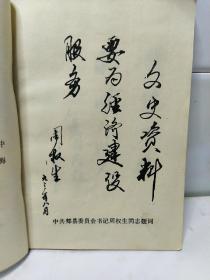 文史资料
要为经济建设
服务
周权生
九三年八月
中共郏县委员会书记周权生同志题词